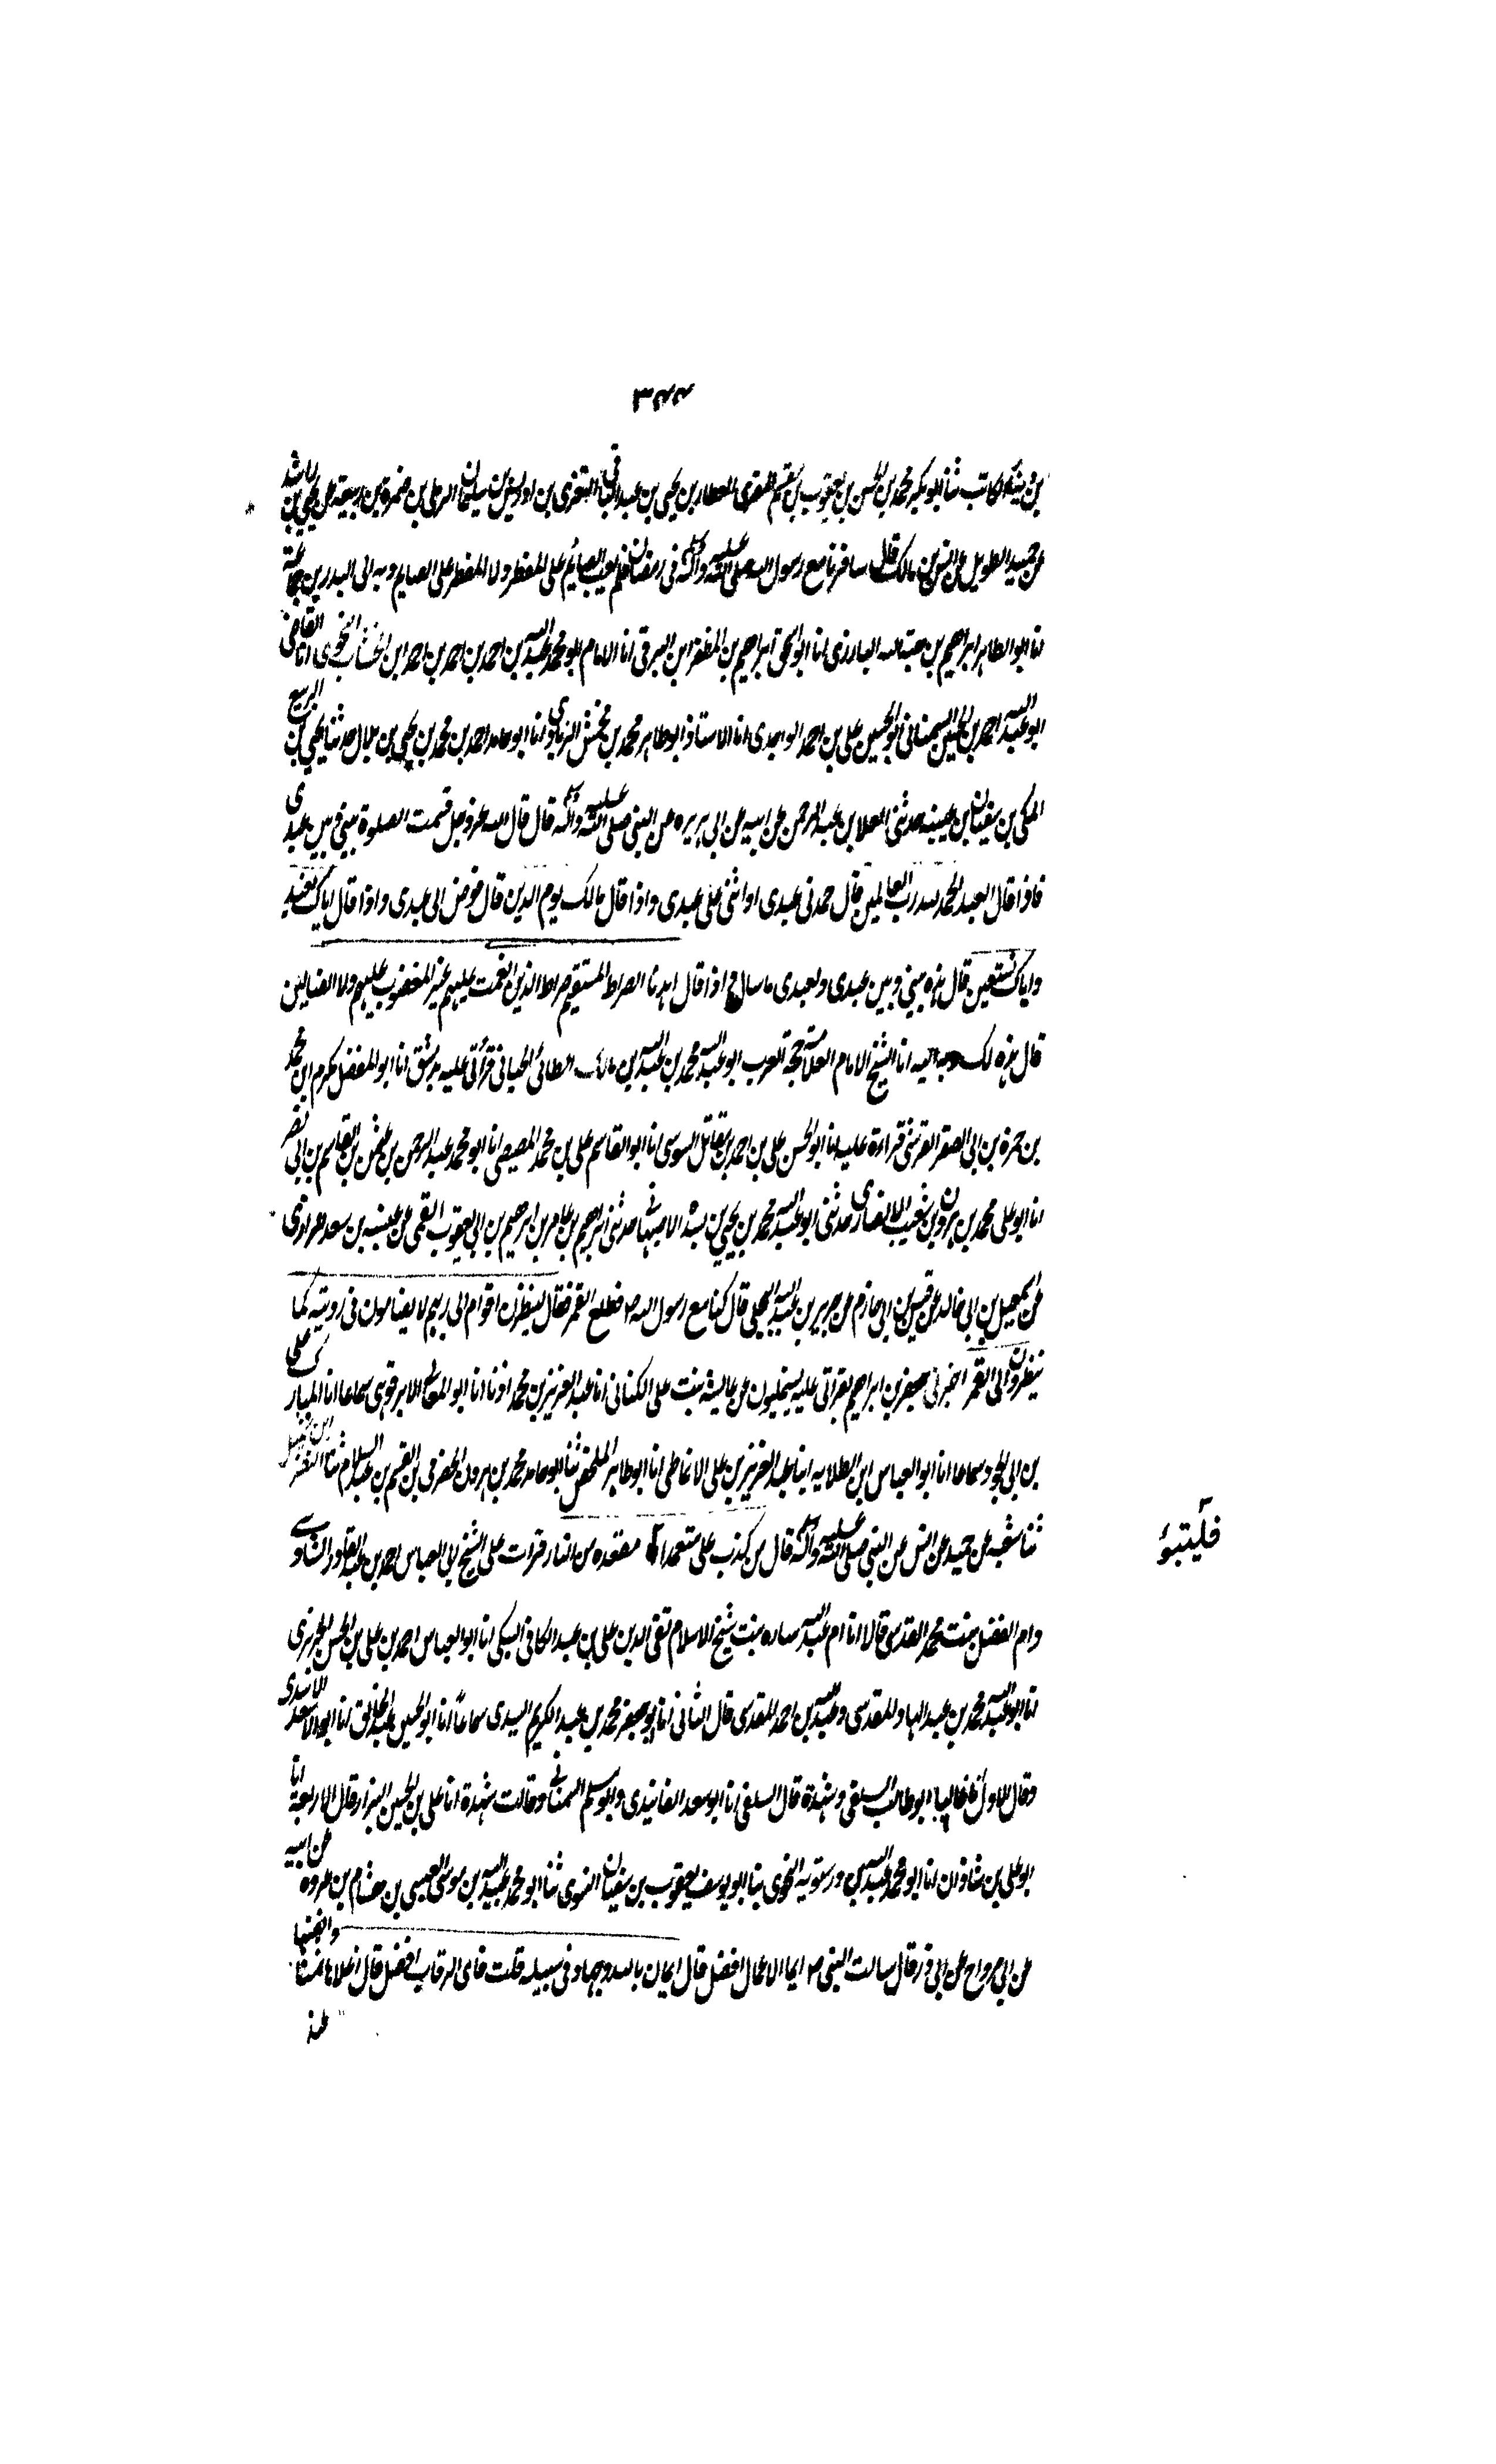 ٣٤٤
بن يشكر الكاتب ثنا ابو بكر محمد بن الحسن بن يعقوب بن مقسم المقرى العطار بن يحيى بن عبد الباقى بن ادريس بن سليمان الرملى بن ضمرة بن ربيعة عن يحيى بن راشد
عن حميد الطويل عن انس بن مالك قال سافرنا مع رسول الله صلى الله عليه وآله وسلم فى رمضان فلم يعب الصائم على المفطر ولا المفطر على الصايم وبه الى البدر بن جماعة
انا ابو الطاهر ابراهيم بن هبة الله البارزى انا ابو اسحق ابراهيم بن المظفر ابن البرقى انا الامام ابو محمد عبد الله بن احمد بن احمد بن احمد ابن الخشاب النحوى انا القاضى
ابو عبد الله احمد بن الحسين السمنانى ابو الحسين على بن احمد الواحدى انا الاستاذ ابو طاهر محمد بن محمش الزيادى انا ابو حامد احمد بن محمد بن يحيى بن بلال حدثنا يحيى بن الربيع
المكى بن سفيان بن عيينه حدثنى العلا بن عبد الرحمن عن ابيه عن ابى هريره عن النبى صلى الله عليه وآله وسلم قال قال الله عز وجل قسمت الصلوة بينى وبين عبدى
فاذا قال العبد الحمد لله رب العالمين قال حمدنى عبدى او اثنى على عبدى واذا قال مالك يوم الدين قال فوض الى عبدى واذا قال اياك نعبد
واياك نستعين قال هذه بينى وبين عبدى ولعبدى ما سال اذا قال اهدنا الصراط المستقيم صراط الذين انعمت عليهم غير المغضوب عليهم ولا الضالين
قال هذه لك وبه اليه انا الشيخ الامام العلامة حجة العرب ابو عبد الله محمد بن عبد الله بن مالك الطائى الجيانى قرأتى عليه بدمشق انا ابو المفضل مكرم ابن محمد
بن حمزة بن ابى الصقر القرشى قراءة عليه انا ابو الحسن على بن احمد بن مقاتل السوسى انا ابو القاسم على بن محمد المصيصى انا ابو محمد عبد الرحمن بن عثمن بن القاسم بن ابى نصر
انا ابو على محمد بن هرون بن شعيب الانصارى حدثنى ابو عبد الله محمد بن يحيى بن منده الاصبهانى حدثنى ابراهيم بن عامر بن ابراهيم بن ابى يعقوب القمى عن عنبسه بن سعد
عن اسمعيل بن ابى خالد عن قيس بن ابى حازم عن جرير بن عبد الله البجلى قال كنا مع رسول الله ص فطلع القمر فقال لينظرن اقوام الى ربهم لا يضامون فى رويته كما
ينظرون الى القمر اخبرنى جعفر بن ابراهيم بقراتى عليه عن عايشه بنت على الكنانى انا عبد العزيز بن محمد اذنا انا ابو المعالى الابرقوهى سماعا انا المبارك على
بن ابى الجود سماعا انا ابو العباس ابن الطلايه انا عبد العزيز بن على الانماطى انا ابو طاهر المخلص ثنا ابو حامد محمد بن هرون الحضرمى بن القسم بن عبد السلام ثنا النضر ابن شميل
ثنا شعبه عن حميد عن انس عن النبى صلى الله عليه وآله وسلم قال من كذب على متعمدا مقعده من النار قرات على الشيخ ابى العباس احمد بن عبد القادر الشاوى
فليتبؤ
وام الفضل بنت محمد القدسى قالا انا ام عبد الله ساره بنت شيخ الاسلام تقى الدين على بن عبد الكافى السبكى انا ابو العباس احمد بن على بن الحسن الجزرى
انا ابو عبد الله محمد بن عبد الهادى المقدسى وعبد الله بن احمد المقدسى قال الثانى انا ابو جعفر محمد بن عبد الكريم السيدى سماعاً انا ابو الحسين عبد الحق انا ابو سعد الاسدى
وقال الاول ابو طالب السلفى وشهدة قال السلفى انا ابو سعد الفانيدى وابو مسلم السمنانى وقالت شهدة انا على بن الحسين البزار قال الاربعة انا
ابو على بن شاذان انا ابو محمد عبد الله بن درستويه النحوى ثنا ابو يوسف يعقوب بن سفيان الفسوى ثنا ابو محمد عبيد الله بن موسى العبسى بن هشام بن عروه عن ابيه
عن ابى مرواح عن ابى ذر قال سالت النبى ص ايما الاعمال افضل قال ايمان بالله وجهاد فى سبيله قلت فاى الرقاب افضل قال اغلاها ثمنا وانفسها
عند